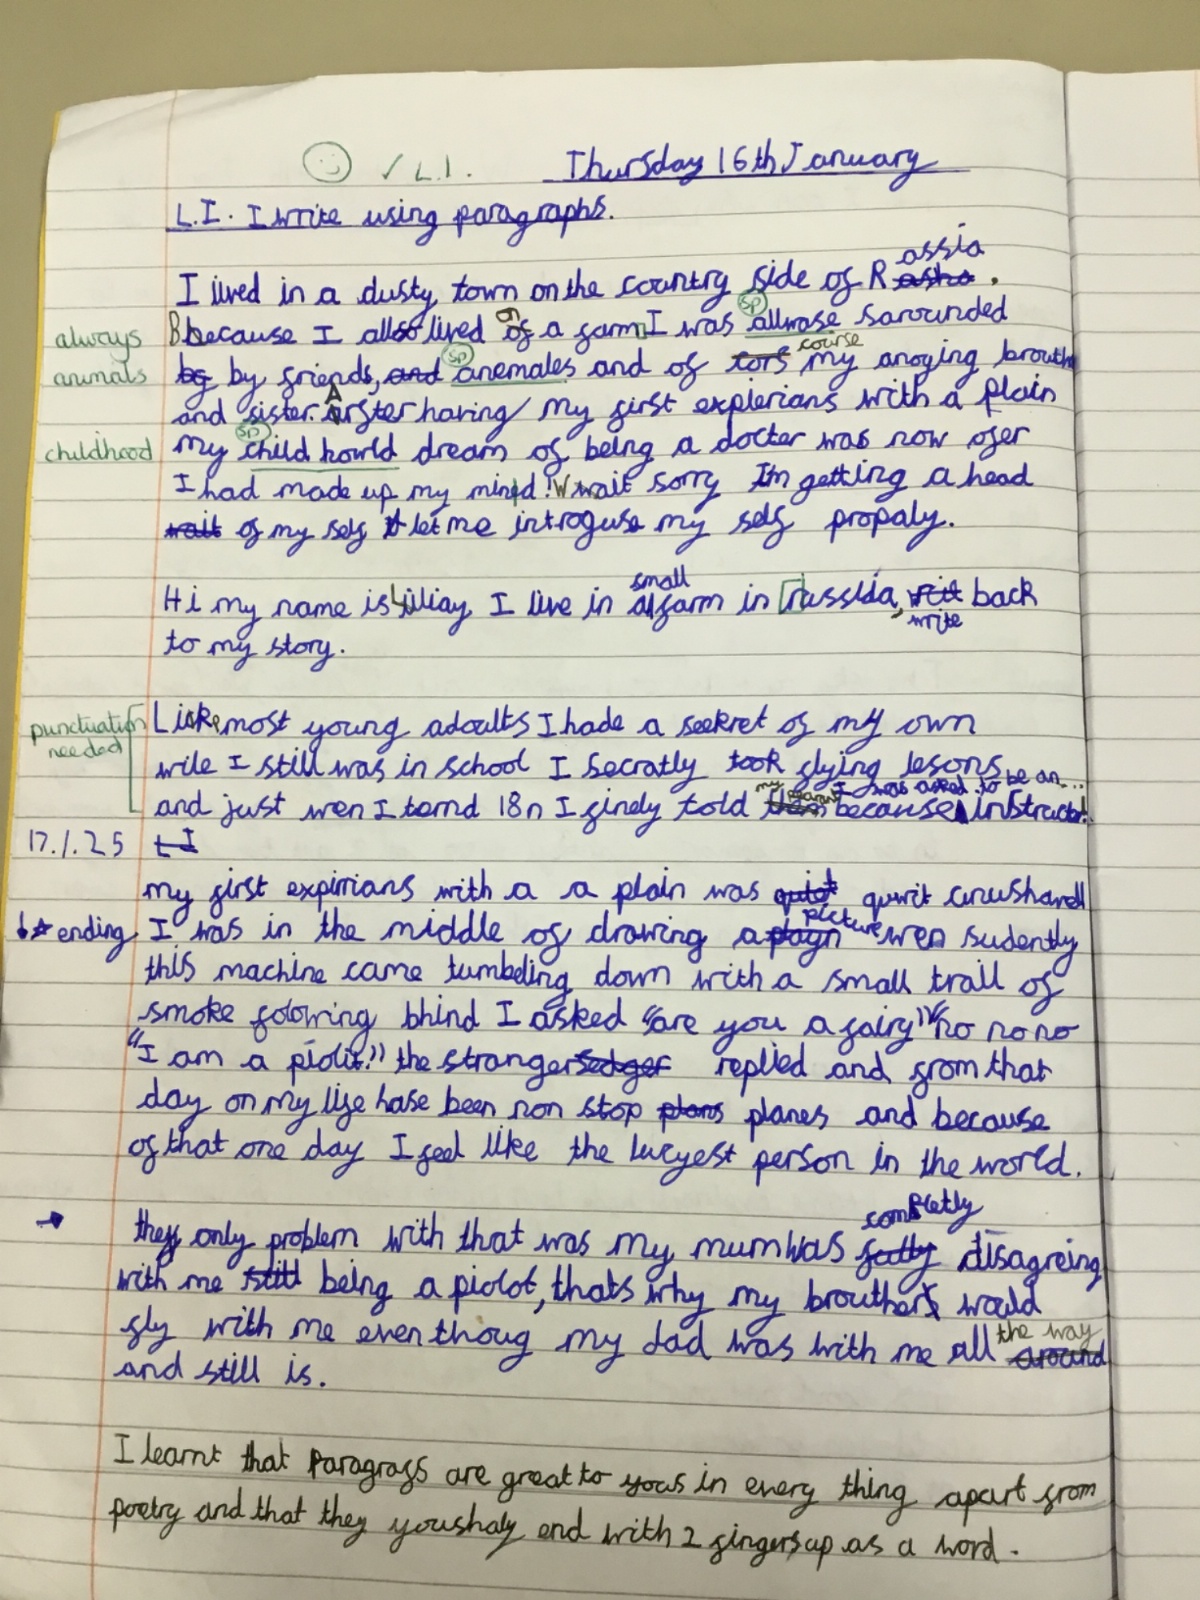 ✓ L.I. Thursday 16th January
L.I. I write using paragraphs.
I lived in a dusty town on the country side of R assia
always Because I also lived on a farm I was allwase sarounded
animals by friends, anemales and of course my anoying brouther
and sister. After having my first explerians with a plain
childhood my child howld dream of being a docter was now ofer
I had made up my mind! Wait sorry Im getting a head
of my self let me introduse my self propaly.
Hi my name is Liliay I live in a small farm in russia, back
to my story.
punctuation needed Like most young adoults I hade a seekret of my own
wile I still was in school I Secratly took flying lesons
and just wen I ternd 18n I finely told my parant because I was asked to be an... instructor!
17.1.25
my first expirrians with a a plain was quwit unushanl
ending I was in the middle of drawing a picture wen sudently
this machine came tumbeling down with a small trail of
smoke folowing bhind I asked "are you a fairy" "no no no
"I am a piolit." the stranger replied and from that
day on my life hase been non stop planes and because
of that one day I feel like the lucyest person in the world.
the only problem with that was my mum was completly disagreing
with me being a piolot, thats why my brouther would
fly with me even thoug my dad was with me all the way
and still is.
I learnt that Paragrafs are great to yous in every thing apart from
poetry and that they youshaly end with 2 fingers up as a word.